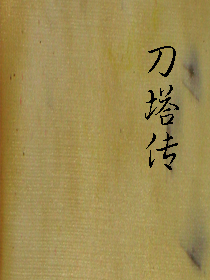 刀塔传